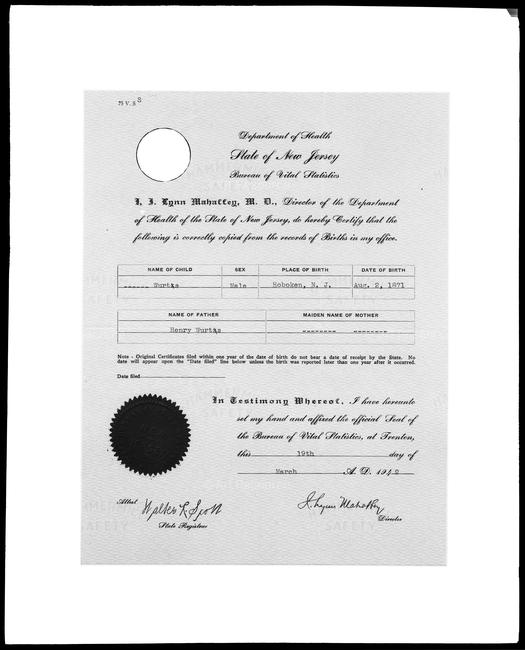 75 V. S S
Department of Health
State of New Jersey
Bureau of Vital Statistics
I, J. Lynn Mahaffey, M. D., Director of the Department
of Health of the State of New Jersey, do hereby Certify that the
following is correctly copied from the records of Births in my office.
NAME OF CHILD SEX PLACE OF BIRTH DATE OF BIRTH
------ Wurtks Male Hoboken, N. J. Aug. 2, 1871
NAME OF FATHER MAIDEN NAME OF MOTHER
Henry Wurtks -------- --------
Note - Original Certificates filed within one year of the date of birth do not bear a date of receipt by the State. No
date will appear upon the "Date filed" line below unless the birth was reported later than one year after it occurred.
Date filed
In Testimony Whereof, I have hereunto
set my hand and affixed the official Seal of
the Bureau of Vital Statistics, at Trenton,
this 19th day of
March A. D. 1942
Attest Walter R. Scott J. Lynn Mahaffey
State Registrar Director
SAFETY SAFETY